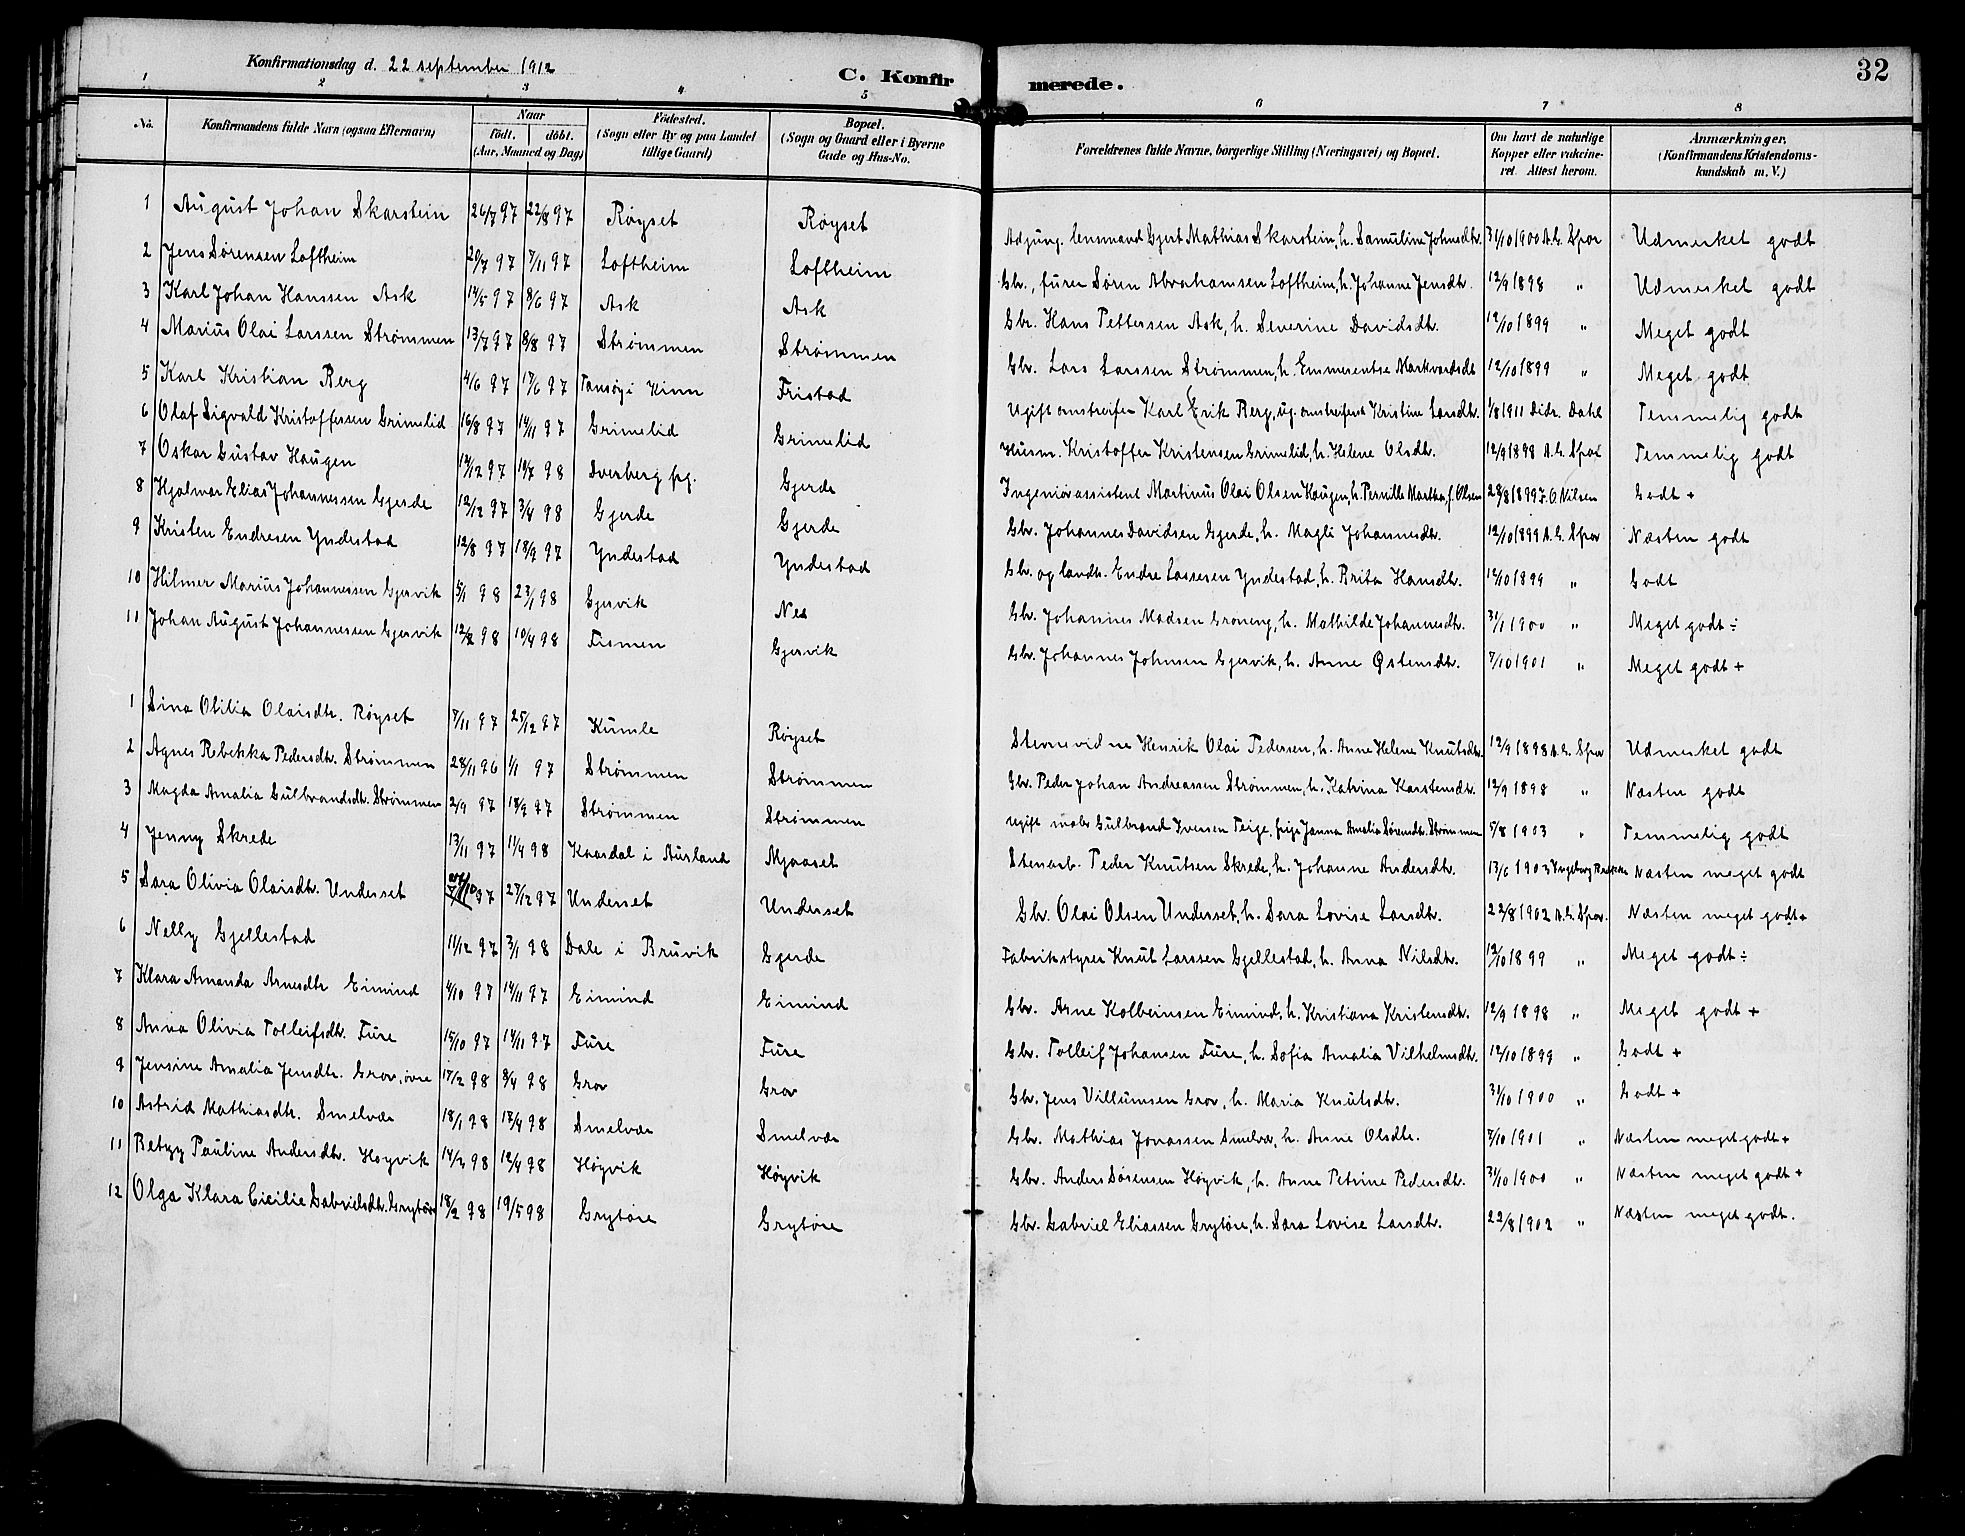 Konfirmationsdag d. 22 september 1912
C. Konfirmerede.
32
1 2 3 4 5 6 7 8
No. | Konfirmandens fulde Navn (ogsaa Efternavn) | Naar födt. döbt. (Aar, Maaned og Dag) | Födested. (Sogn eller By og paa Landet tillige Gaard) | Bopæl. (Sogn og Gaard eller i Byerne Gade og Hus-No. | Forældrenes fulde Navne, borgerlige Stilling (Næringsvei) og Bopæl. | Om havt de naturlige Kopper eller vakcineret. Attest herom. | Anmærkninger. (Konfirmandens Kristendomskundskab m. V.)
1 August Johan Skarstein | 26/7 97 | 22/8 97 | Røyset | Røyset | Adjung. lensmand Gjert Mathias Skarstein, h. Samuline Johnsdtr. | 31/10 1900 A. G. Spor | Udmerket godt
2 Jens Sørensen Loftheim | 20/7 97 | 7/11 97 | Loftheim | Loftheim | Gbr., fører Søren Abrahamsen Loftheim, h. Johanne Jensdtr. | 12/9 1898 " | Udmerket godt
3 Karl Johan Hanssen Ask | 14/5 97 | 8/6 97 | Ask | Ask | Gbr. Hans Pettersen Ask, h. Severine Davidsdtr. | 12/10 1899 " | Meget godt
4 Marius Olai Larssen Strømmen | 13/7 97 | 8/8 97 | Strømmen | Strømmen | Gbr. Lars Larssen Strømmen, h. Emmerentse Markvardsdtr | 12/10 1899 " | Meget godt
5 Karl Kristian Berg | 4/6 97 | 17/6 97 | Tansøy i Kinn | Fristad | Ugift omstreifer Karl Erik Berg, ug. omstreifersk Kristine Larsdtr. | 1/8 1911 Didr. Dahl | Temmelig godt
6 Olaf Sigvald Kristoffersen Grimelid | 16/8 97 | 14/11 97 | Grimelid | Grimelid | Husm. Kristoffer Kristensen Grimelid, h. Helene Olsdtr. | 12/9 1898 A. G. Spor | Temmelig godt
7 Oskar Gustav Haugen | 19/12 97 | 10/7 98 | Sverberg pg. | Gjerde | Ingeniørassistent Martinus Olai Olsen Haugen, h. Pernille Marthea, f. Olsen | 29/8 1899 F. O Nilsen | Godt +
8 Hjalmar Elias Johannessen Gjerde | 12/12 97 | 3/4 98 | Gjerde | Gjerde | Gbr. Johannes Davidsen Gjerde, h. Magli Johannesdtr. | 12/10 1899 A. G. Spor | Næsten godt
9 Kristen Endresen Yndestad | 12/8 97 | 19/9 97 | Yndestad | Yndestad | Gbr. og landh. Endre Lassesen Yndestad, h. Brita Hansdtr. | 12/10 1899 " | Godt
10 Hilmer Marius Johannessen Gjervik | 5/1 98 | 23/1 98 | Gjervik | Nes | Gbr. Johannes Madsen Grøneng, h. Mathilde Johannesdtr. | 31/1 1900 " | Meget godt ÷
11 Johan August Johannessen Gjervik | 12/2 98 | 10/4 98 | Tismen | Gjervik | Gbr. Johannes Johnsen Gjervik, h. Anne Østensdtr. | 7/10 1901 " | Meget godt +
1 Sina Otilia Olaisdtr. Røyset | 7/11 97 | 25/12 97 | Kumle | Røyset | Stevnevidne Henrik Olai Pedersen, h. Anne Helene Knutsdtr. | 12/9 1898 A. G. Spor | Udmerket godt
2 Agnes Rebekka Pedersdtr. Strømmen | 28/11 96 | 1/1 97 | Strømmen | Strømmen | Gbr. Peder Johan Andreassen Strømmen, h. Katrina Karstensdtr. | 12/9 1898 " | Næsten godt
3 Magda Amalia Gulbrandsdtr. Strømmen | 2/9 97 | 19/9 97 | Strømmen | Strømmen | Ugift maler Gulbrand Iversen Teige, pige Janna Amalia Sørensdtr. Strømmen | 5/8 1903 " | Temmelig godt
4 Jenny Skrede | 13/11 97 | 11/4 98 | Kaardal i Aurland | Mjaaset | Stenarb. Peder Knutsen Skrede, h. Johanne Andersdtr. | 13/6 1903 Ingeborg | Næsten meget godt
5 Sara Olivia Olaisdtr. Underset | 97 | 27/12 97 | Underset | Underset | Gbr. Olai Olsen Underset, h. Sara Lovise Larsdtr. | 22/8 1902 A. G. Spor. | Næsten meget godt +
6 Nelly Gjellestad | 11/12 97 | 3/1 98 | Dale i Bruvik | Gjerde | Fabrikstyrer Knut Larssen Gjellestad, h. Anna Nilsdtr. | 12/10 1899 " | Meget godt ÷
7 Klara Amanda Arnesdtr Eimind | 4/10 97 | 14/11 97 | Eimind | Eimind | Gbr. Arne Kolbeinsen Eimind, h. Kristiana Kristensdtr. | 12/9 1898 " | Meget godt +
8 Anna Olivia Tolleifsdtr. Fure | 15/10 97 | 14/11 97 | Fure | Fure | Gbr. Tolleif Johansen Fure, h. Sofia Amalia Vilhelmsdtr. | 12/10 1899 " | Godt +
9 Jensine Amalia Jensdtr. Grov, ivre | 17/2 98 | 8/4 98 | Grov | Grov | Gbr. Jens Villumsen Grov, h. Maria Knutsdtr. | 31/10 1900 " | Godt +
10 Astrid Mathiasdtr. Smelvær | 18/1 98 | 13/4 98 | Smelvær | Smelvær | Gbr. Mathias Jonassen Smelvær, h. Anne Olsdtr. | 7/10 1901 " | Næsten meget godt +
11 Betzy Pauline Andersdtr. Høyvik | 14/2 98 | 12/4 98 | Høyvik | Høyvik | Gbr. Anders Sørensen Høyvik, h. Anne Petrine Pedersdtr. | 31/10 1900 " | Næsten meget godt +
12 Olga Klara Cicilie Gabrielsdtr. Grytøre | 18/2 98 | 19/5 98 | Grytøre | Grytøre | Gbr. Gabriel Eliassen Grytøre, h. Sara Lovise Larsdtr. | 22/8 1902 " | Næsten meget godt.